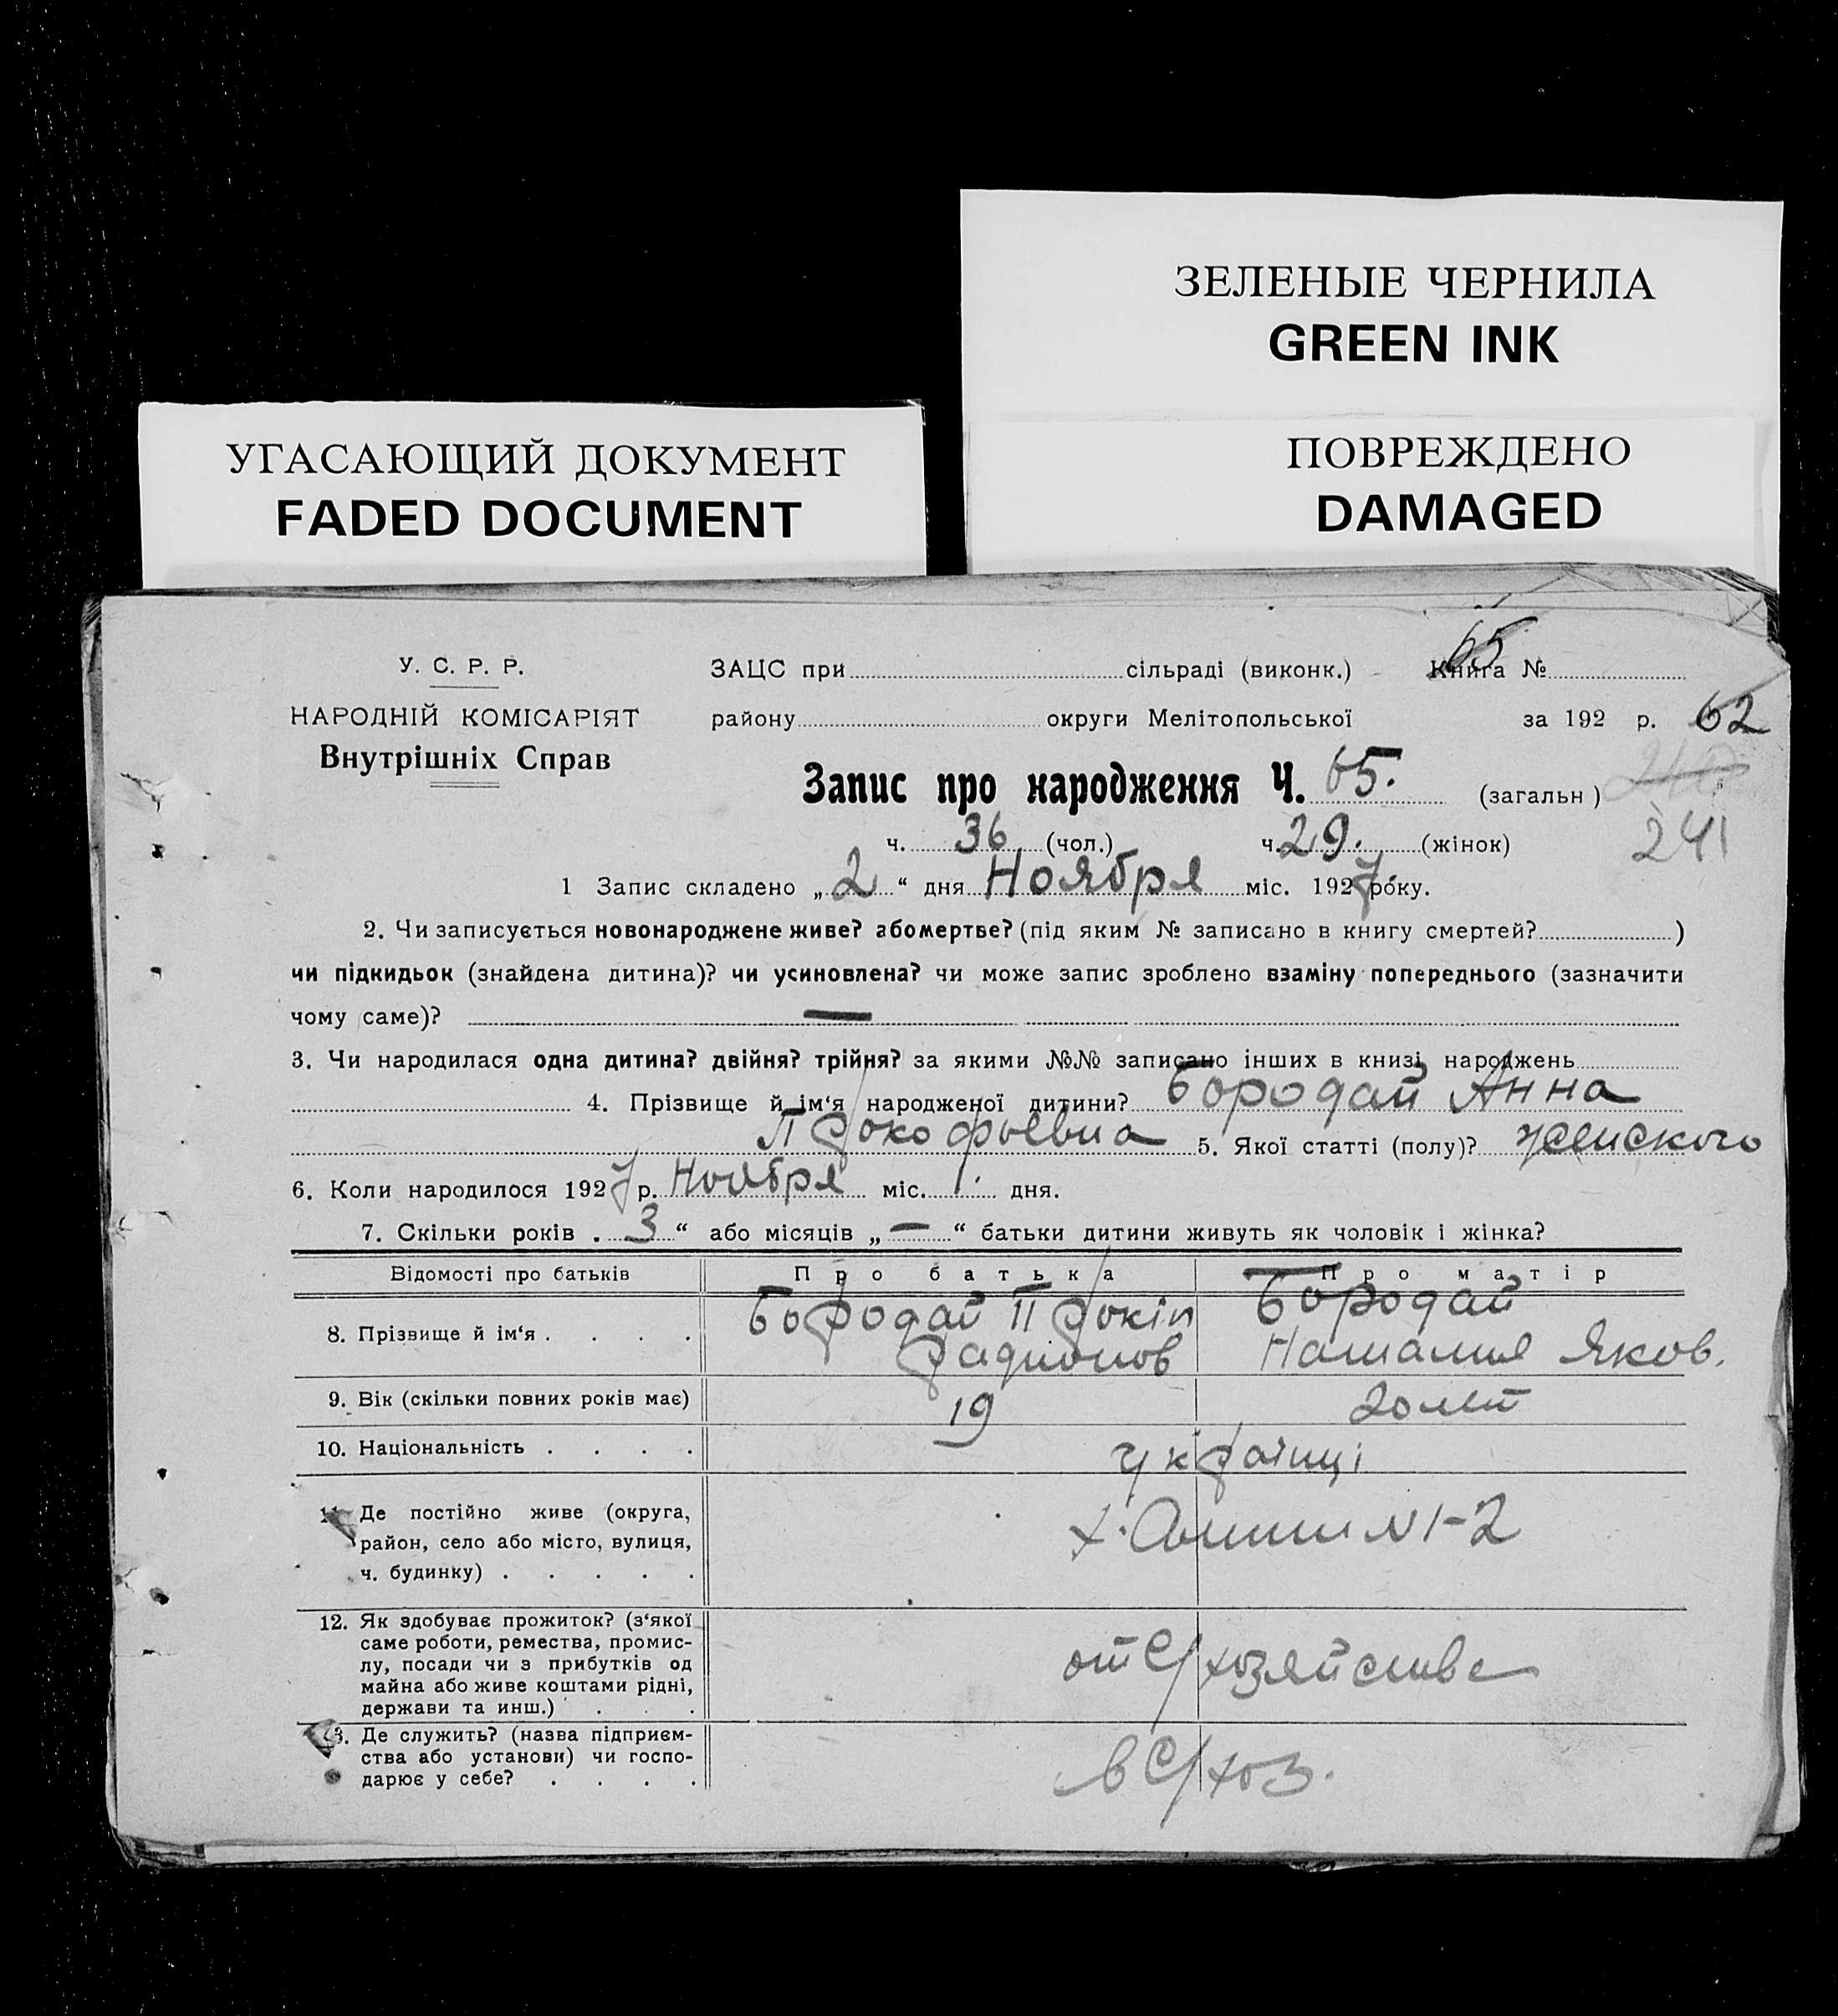 ЗЕЛЕНЫЕ ЧЕРНИЛА
GREEN INK
УГАСАЮЩИЙ ДОКУМЕНТ
FADED DOCUMENT
ПОВРЕЖДЕНО
DAMAGED
65
У. С. Р. Р.
ЗАЦС при сільраді (виконк.) Книга №
НАРОДНІЙ КОМІСАРІЯТ
району округи Мелітопольської за 192 р. 62
Внутрішніх Справ
Запис про народження Ч. 65. (загальн)
ч. 36 (чол.) ч. 29. (жінок) 241
1 Запис складено „2“ дня Ноября міс. 1927 року.
2. Чи записується новонароджене живе? або мертве? (під яким № записано в книгу смертей? )
чи підкидьок (знайдена дитина)? чи усиновлена? чи може запис зроблено взаміну попереднього (зазначити
чому саме)? —
3. Чи народилася одна дитина? двійня? трійня? за якими №№ записано інших в книзі народжень
4. Прізвище й ім‘я народженої дитини? Бородай Анна
Прокофьевна 5. Якої статті (полу)? женского
6. Коли народилося 1927 р. Ноября міс. 1. дня.
7. Скільки років „3“ або місяців „—“ батьки дитини живуть як чоловік і жінка?
Відомості про батьків Про батька Про матір
8. Прізвище й ім‘я . . . . Бородай Прокіп Бородай
Радионов Наталия Яков.
9. Вік (скільки повних років має) 19 20 лет
10. Національність . . . . українці
11. Де постійно живе (округа,
район, село або місто, вулиця, N1-2
ч. будинку) . . . . .
12. Як здобуває прожиток? (з‘якої
саме роботи, ремества, промис-
лу, посади чи з прибутків од от С/хозяйства
майна або живе коштами рідні,
держави та инш.) . . .
13. Де служить? (назва підприєм-
ства або установи) чи госпо- в С/хоз.
дарює у себе? . . . .